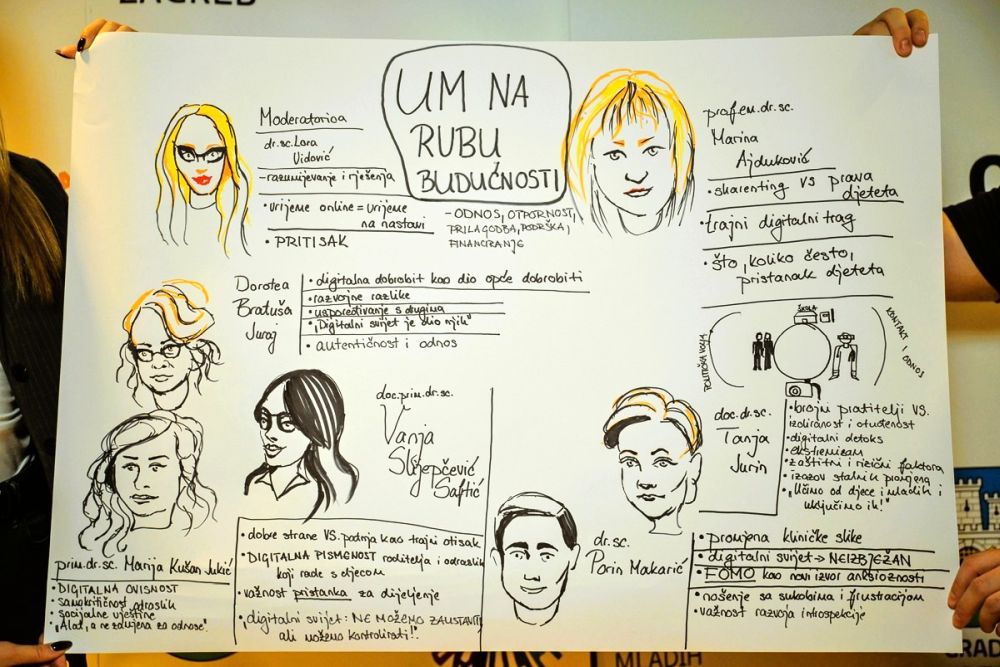 ZAGREB
UM NA
RUBU
BUDUĆNOSTI
Moderatorica
dr.sc. Lora
Vidović
- razumijevanje i rješenja
• vrijeme online = vrijeme
na nastavi
• PRITISAK
- ODNOS, OTPORNOST,
PRILAGODBA, PODRŠKA,
FINANCIRANJE
prof.em.dr.sc.
Marina
Ajduković
• sharenting VS prava
djeteta
• trajni digitalni trag
• što, koliko često,
pristanak djeteta
ŠKOLA
POLITIČKA VOLJA
KONTAKT I ODNOS
Dorotea
Bratuša
Juraj
• digitalna dobrobit kao dio opće dobrobiti
• razvojne razlike
• uspoređivanje s drugima
• "Digitalni svijet je dio njih"
• autentičnost i odnos
doc.prim.dr.sc.
Vanja
Slijepčević
Saftić
• dobre strane VS. padnja kao trajni otisak
• DIGITALNA PISMENOST roditelja i odraslih
koji rade s djecom
• važnost pristanka za dijeljenje
• "digitalni svijet: NE MOŽEMO ZAUSTAVITI,
ali možemo kontrolirati!".
prim.dr.sc. Marija Kušan Jukić
• DIGITALNA OVISNOST
• samokritičnost odraslih
• socijalne vještine
• "Alat, a ne zamjena za odnose".
doc.dr.sc.
Tanja
Jurin
• brojni pratitelji VS.
izoliranost i otuđenost
• digitalni detoks
• ekstremizam
• zaštitni i rizični faktora
• izazov stalnih promjena
• "Učimo od djece i mladih i
uključimo ih!"
dr.sc.
Porin Makarić
• promjena kliničke slike
• digitalni svijet → NEIZBJEŽAN
• FOMO kao novi izvor anksioznosti
• nošenje sa sukobima i frustracijom
• važnost razvoja introspekcije
MLADIH
GRAD